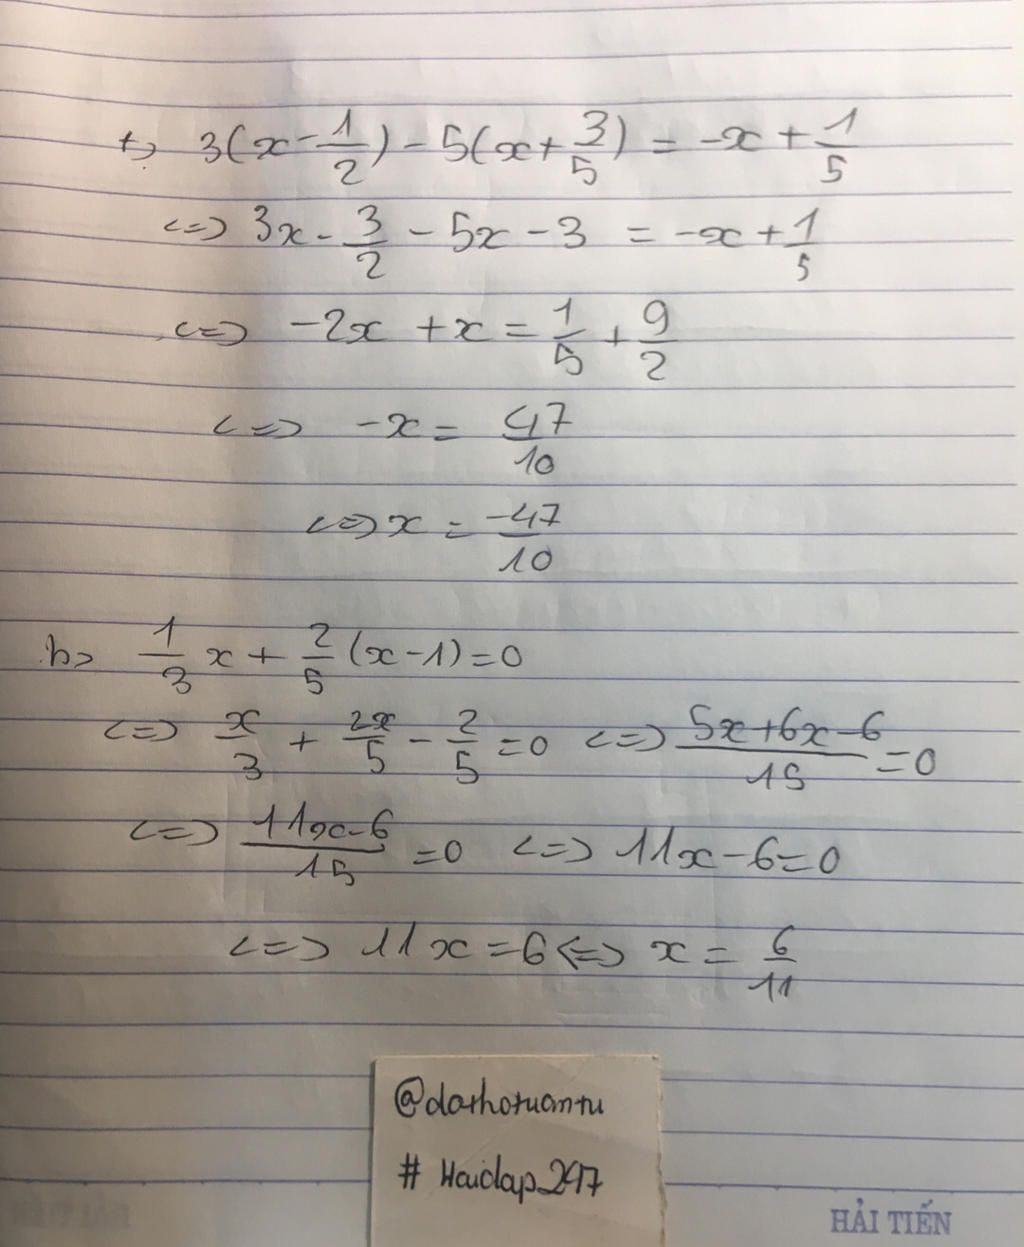 t, 3(x - 1/2) - 5(x + 3/5) = -x + 1/5
<=> 3x - 3/2 - 5x - 3 = -x + 1/5
<=> -2x + x = 1/5 + 9/2
<=> -x = 47/10
<=> x = -47/10
h> 1/3 x + 2/5 (x - 1) = 0
<=> x/3 + 2x/5 - 2/5 = 0 <=> (5x + 6x - 6)/15 = 0
<=> (11x - 6)/15 = 0 <=> 11x - 6 = 0
<=> 11x = 6 <=> x = 6/11
@dathotuantu
# Hoidap_247
HẢI TIẾN